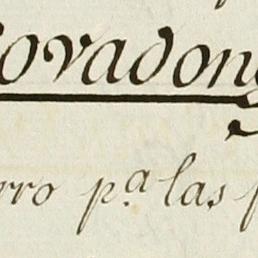 Covadong
rro pª las p